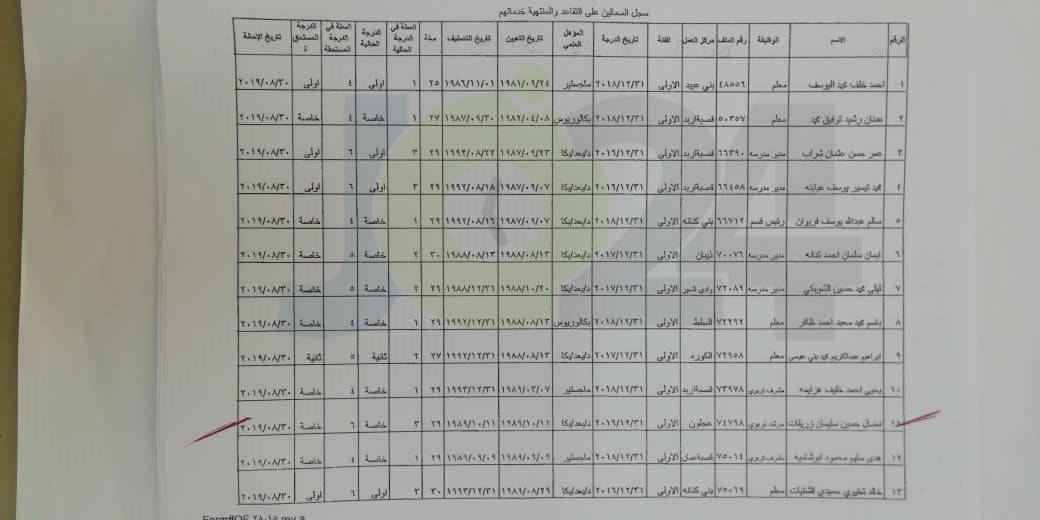 سجل المحالين على التقاعد والمنتهية خدماتهم
الرقم الاسم الوظيفة رقم الملف مركز العمل الفئة تاريخ الدرجة المؤهل العلمي تاريخ التعيين تاريخ التصنيف سنة السنة في الدرجة الحالية الدرجة الحالية السنة في الدرجة المستحقة الدرجة المستحقة تاريخ الإحالة
١ احمد خلف محمد اليوسف معلم ٤٨٥٥٦ بني عبيد الاولى ٢٠١٨/١٢/٣١ ماجستير ١٩٨١/٠٩/٢٤ ١٩٨٦/١١/٠١ ٢٥ ١ اولى ٤ اولى ٢٠١٩/٠٨/٣٠
٢ عدنان رشيد توفيق محمد معلم ٥٠٣٥٧ قصبةاربد الاولى ٢٠١٨/١٢/٣١ بكالوريوس ١٩٨٢/٠٤/٠٨ ١٩٨٧/٠٩/٣٠ ٢٧ ١ خاصة ٤ خاصة ٢٠١٩/٠٨/٣٠
٣ عمر حسن عثمان شراب مدير مدرسه ٦٦٣٩٠ قصبةاربد الاولى ٢٠١٦/١٢/٣١ د/بعد/بكا ١٩٨٧/٠٩/٢٣ ١٩٩٢/٠٨/٢٢ ٢٩ ٣ اولى ٦ اولى ٢٠١٩/٠٨/٣٠
٤ محمد تيسير يوسف عبابنه مدير مدرسه ٦٦٤٥٨ قصبةاربد الاولى ٢٠١٦/١٢/٣١ د/بعد/بكا ١٩٨٧/٠٩/٠٧ ١٩٩٢/٠٨/١٨ ٢٩ ٣ اولى ٦ اولى ٢٠١٩/٠٨/٣٠
٥ سالم عبدالله يوسف فريوان رئيس قسم ٦٦٧١٢ بني كنانه الاولى ٢٠١٨/١٢/٣١ د/بعد/بكا ١٩٨٧/٠٩/٠٧ ١٩٩٢/٠٨/١٦ ٢٩ ١ خاصة ٤ خاصة ٢٠١٩/٠٨/٣٠
٦ ايمان سلمان احمد كنانه مدير مدرسه ٧٠٠٧٦ ذيبان الاولى ٢٠١٧/١٢/٣١ د/بعد/بكا ١٩٨٨/٠٨/١٣ ١٩٨٨/٠٨/١٣ ٣٠ ٢ خاصة ٥ خاصة ٢٠١٩/٠٨/٣٠
٧ ليلى محمد حسين الشوبكي مدير مدرسه ٧٢٠٨٩ وادي السير الاولى ٢٠١٧/١٢/٣١ د/بعد/بكا ١٩٨٨/١٠/٢٠ ١٩٨٨/١٢/٣١ ٢٩ ٢ خاصة ٥ خاصة ٢٠١٩/٠٨/٣٠
٨ باسم محمد سعيد احمد ظافر معلم ٧٢٢٩٢ السلط الاولى ٢٠١٨/١٢/٣١ بكالوريوس ١٩٨٨/٠٨/١٣ ١٩٩٢/١٢/٣١ ٢٩ ١ خاصة ٤ خاصة ٢٠١٩/٠٨/٣٠
٩ ابراهيم عبدالكريم محمد بني عيسى معلم ٧٢٩٥٨ الكوره الاولى ٢٠١٧/١٢/٣١ د/بعد/بكا ١٩٨٨/٠٨/١٣ ١٩٩٢/١٢/٣١ ٢٧ ٢ ثانية ٥ ثانية ٢٠١٩/٠٨/٣٠
١٠ يحيى احمد خليف هزايمه مشرف تربوي ٧٣٩٧٨ قصبةاربد الاولى ٢٠١٨/١٢/٣١ ماجستير ١٩٨٩/٠٣/٠٧ ١٩٩٣/١٢/٣١ ٢٩ ١ خاصة ٤ خاصة ٢٠١٩/٠٨/٣٠
١١ نضال حسين سليمان زريقات مرشد تربوي ٧٤٧٩٨ عجلون الاولى ٢٠١٦/١٢/٣١ د/بعد/بكا ١٩٨٩/١٠/١١ ١٩٨٩/١٠/١١ ٢٩ ٣ خاصة ٦ خاصة ٢٠١٩/٠٨/٣٠
١٢ هدى سليم محمود ابوشاميه مشرف تربوي ٧٥٠١٤ قصبةعمان الاولى ٢٠١٨/١٢/٣١ ماجستير ١٩٨٩/٠٩/٠٩ ١٩٨٩/٠٩/٠٩ ٢٩ ١ خاصة ٤ خاصة ٢٠١٩/٠٨/٣٠
١٣ خالد شخيري حميدي الشليات معلم ٧٥٠٦٩ بني كنانه الاولى ٢٠١٦/١٢/٣١ د/بعد/بكا ١٩٨٩/٠٨/٢٩ ١٩٩٣/١٢/٣١ ٣٠ ٣ اولى ٦ اولى ٢٠١٩/٠٨/٣٠
JO24